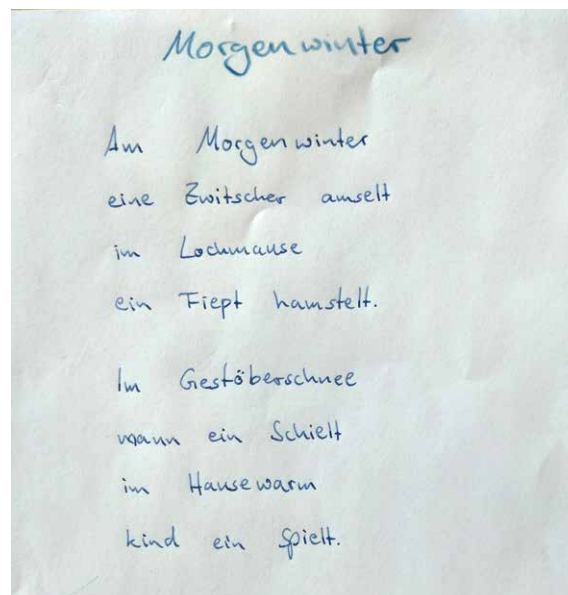 Morgenwinter
Am Morgenwinter
eine Zwitscher amselt
im Lochmause
ein Fiept hamstelt.
Im Gestöberschnee
mann ein Schielt
im Hausewarm
kind ein Spielt.